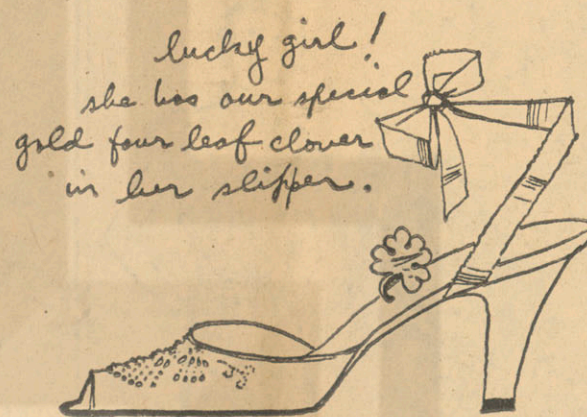 lucky girl!
she has our special
gold four leaf clover
in her slipper.